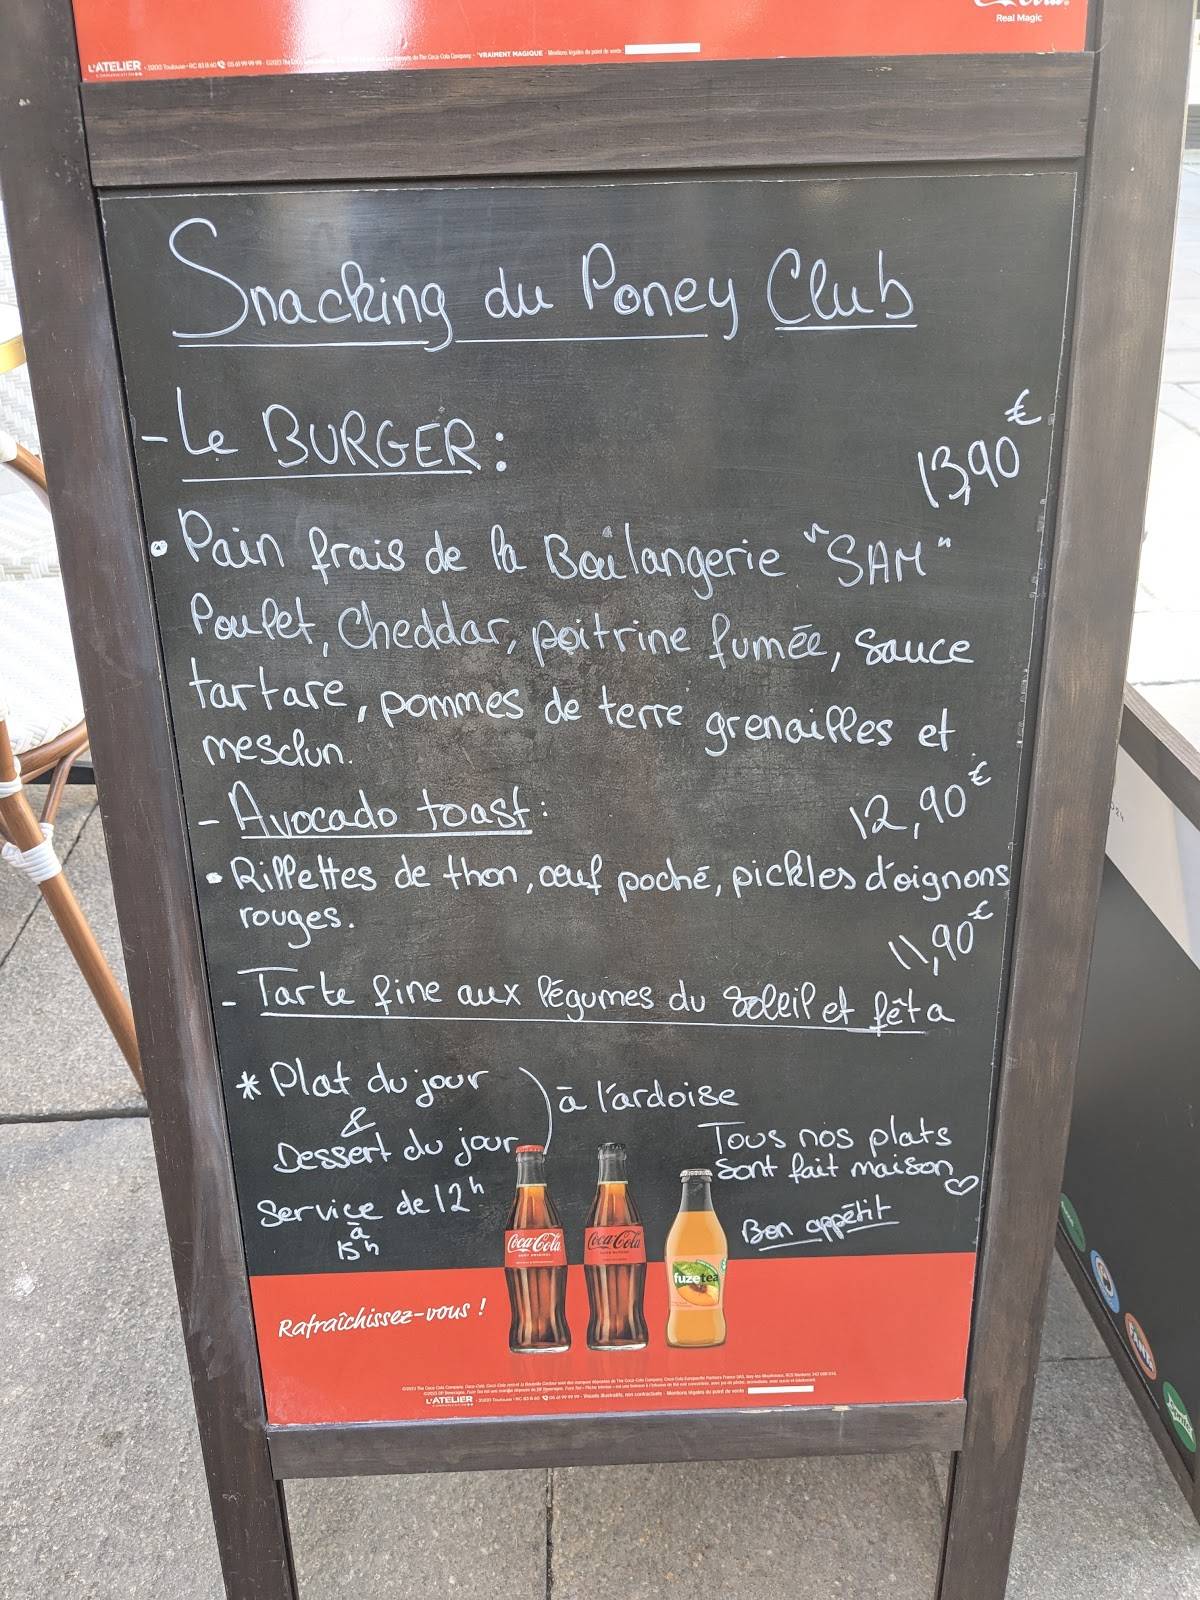 Real Magic
L'ATELIER
"VRAIMENT MAGIQUE
Snacking du Poney Club
- Le BURGER : 13,90€
• Pain frais de la Boulangerie "SAM"
Poulet, Cheddar, poitrine fumée, sauce
tartare, pommes de terre grenailles et
mesclun.
- Avocado toast : 12,90€
• Rillettes de thon, œuf poché, pickles d'oignons
rouges.
11,90€
- Tarte fine aux légumes du soleil et fêta
* Plat du jour
&
Dessert du jour
à l'ardoise
Service de 12h
à
15h
Tous nos plats
sont fait maison ♡
Bon appétit
Coca-Cola
Coca-Cola
fuzetea
Rafraîchissez-vous !
L'ATELIER